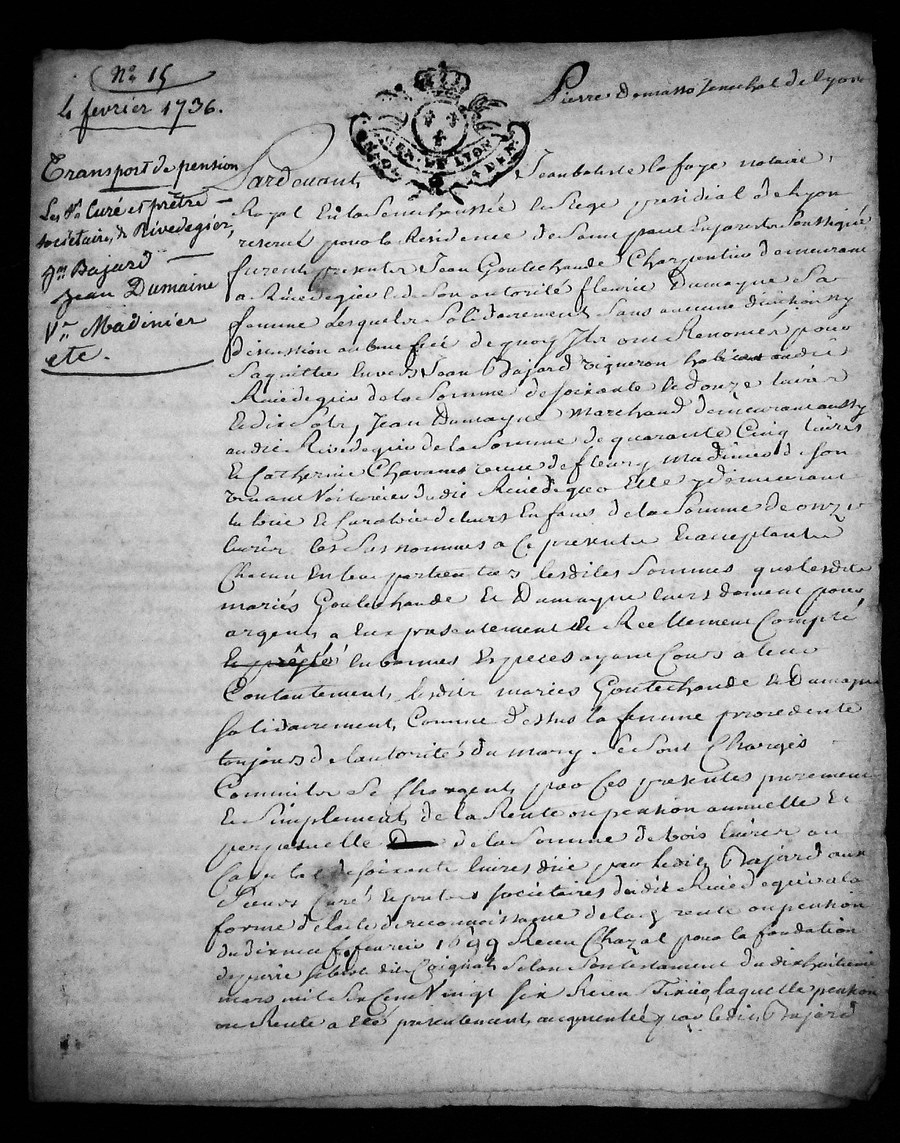 N.o 15
4 fevrier 1736.
Transport de pension
Les Srs Curé et prêtre
societaires de Rivedegier,
Jn Bajard
Jean Dumaine
Ve Madinier
etc.
GEN. DE LYON
Pierre Dumas Senechal de lyon
Pardevant Jean batiste la faye notaire
Royal En la Senechaussée le Siege presidial de Lyon
reservé pour la Residence de Saint paul En jarest Soussigné
furent presentes Jean Goutechaude Charpentier demeurant
a Rivedegier le de Son autorité fleurie Dumayne Sa
femme Lesquels Solidairement Sans aucune division ny
discussion au benefice de quoy Ils ont Renoncé, pour
Saquitter Envers Jean Bajard vigneron habitant audit
Rivedegier de la Somme de Soixante le douze livres
Et dix Sols, Jean Dumayne Marchand demeurant aussy
audit Rivedegier de la Somme de quarante Cinq livres
Et Catherine Chavanes veuve de fleury Madinier de Son
vivant Voiturier dudit Rivedegier Elle y demeurant
tutrice Et Curatrice de leurs Enfans de la Somme de onze
livres les Susnommés a Ce presents Et acceptants
Chacun En leur particulier lesdites Sommes que lesdits
mariés Goutechaude Et Dumayne leurs doivent pour
argent a Eux presentement Et Reellement Compté
Et prêté en bonnes Especes ayant Cours a leur
Contantement, lesdits mariés Goutechaude Et Dumayne
Solidairement Comme dessus la femme procedente
toujours de lautorité du mary Se Sont Chargés
Comme ils Se Chargent par Ces presentes purement
Et Simplement de la Rente ou pension annuelle Et
perpetuelle de la Somme de trois livres au
Capital de Soixante livres düe par ledit Bajard aux
Sieurs Curé Et pretres Societaires dudit Rivedegier a la
forme de lacte de reconnoissance de la rente ou pension
du dixneuf fevrier 1699 Receu Chazal pour la fondation
de pierre dit Coignat Selon Son testament du dixhuitieme
mars mil Six Cent Vingt Six Receu laquelle pension
ou Rente a Eté presentement augmentée par ledit Bajard